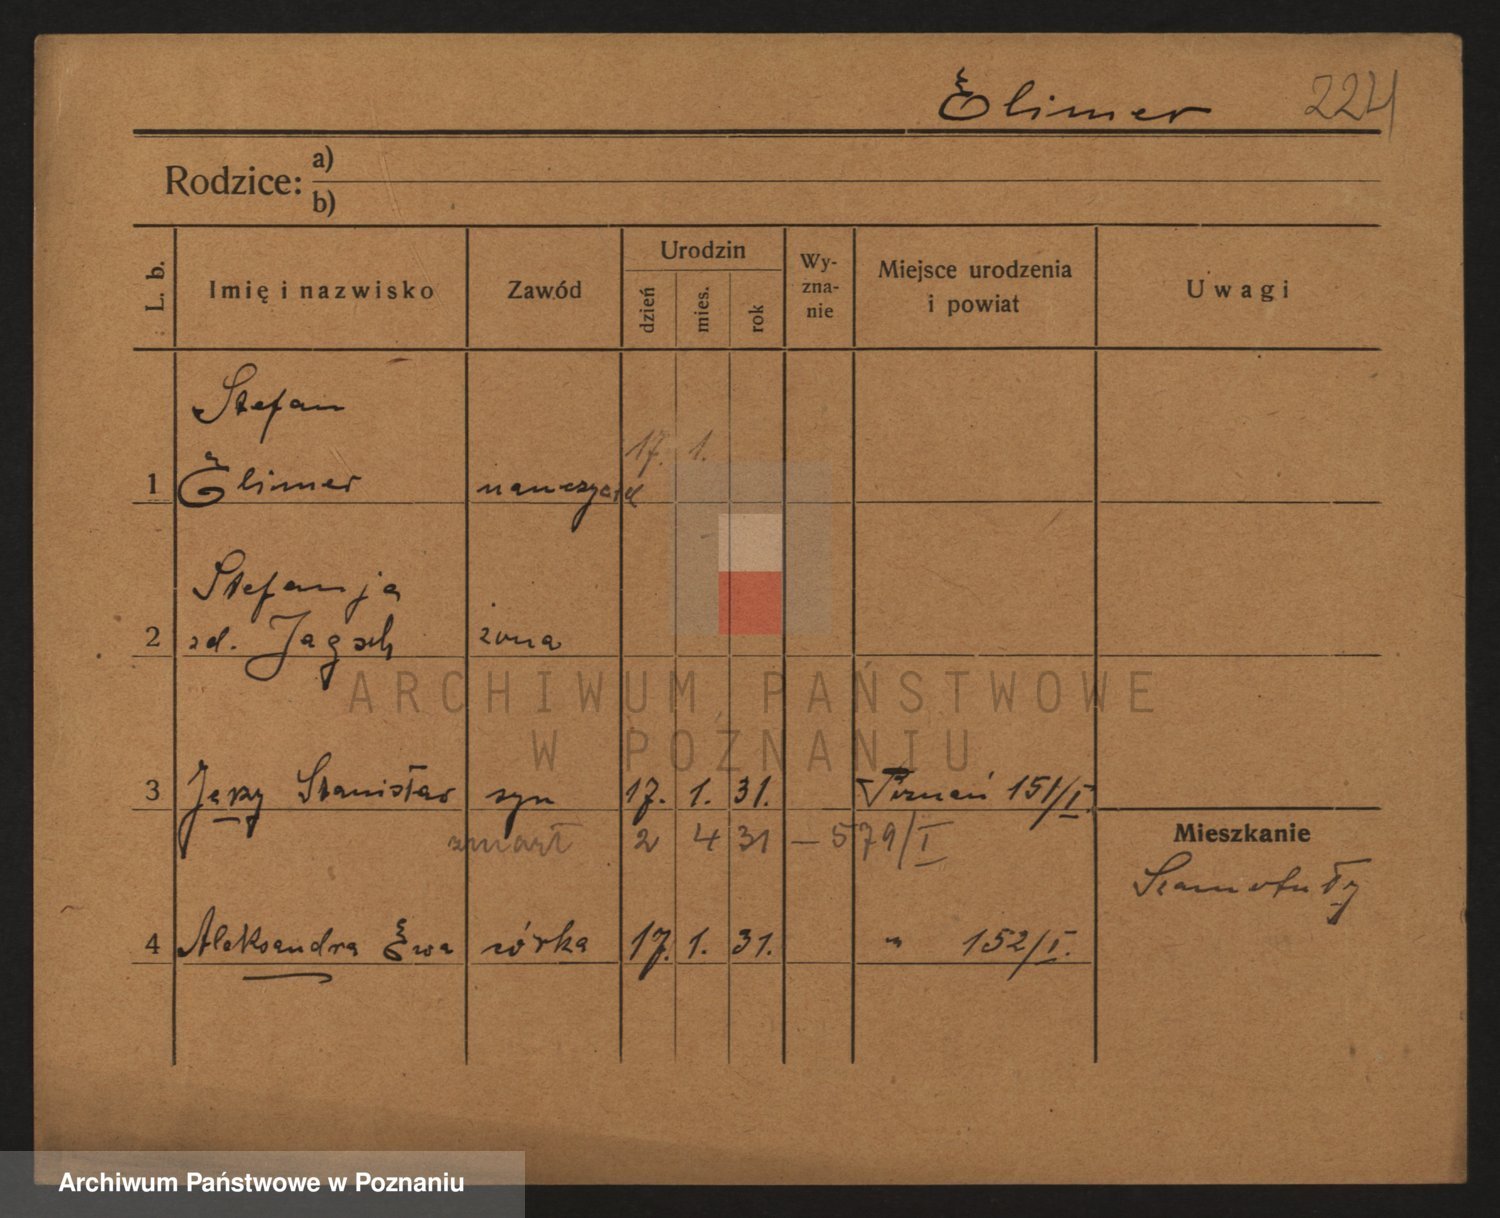 Elimer 224
Rodzice: a)
b)
L. b. Imię i nazwisko Zawód Urodzin dzień mies. rok Wy-zna-nie Miejsce urodzenia i powiat Uwagi
Stefan
17. 1.
1 Elimer nauczyciel
Stefanja
2 zd. Jagsch żona
ARCHIWUM PAŃSTWOWE
W POZNANIU
3 Jerzy Stanisław syn 17. 1. 31. Poznań 151/I.
zmarł 2 4 31 — 579/I
Mieszkanie
Szamotuły
4 Aleksandra Ewa córka 17. 1. 31. " 152/I.
Archiwum Państwowe w Poznaniu